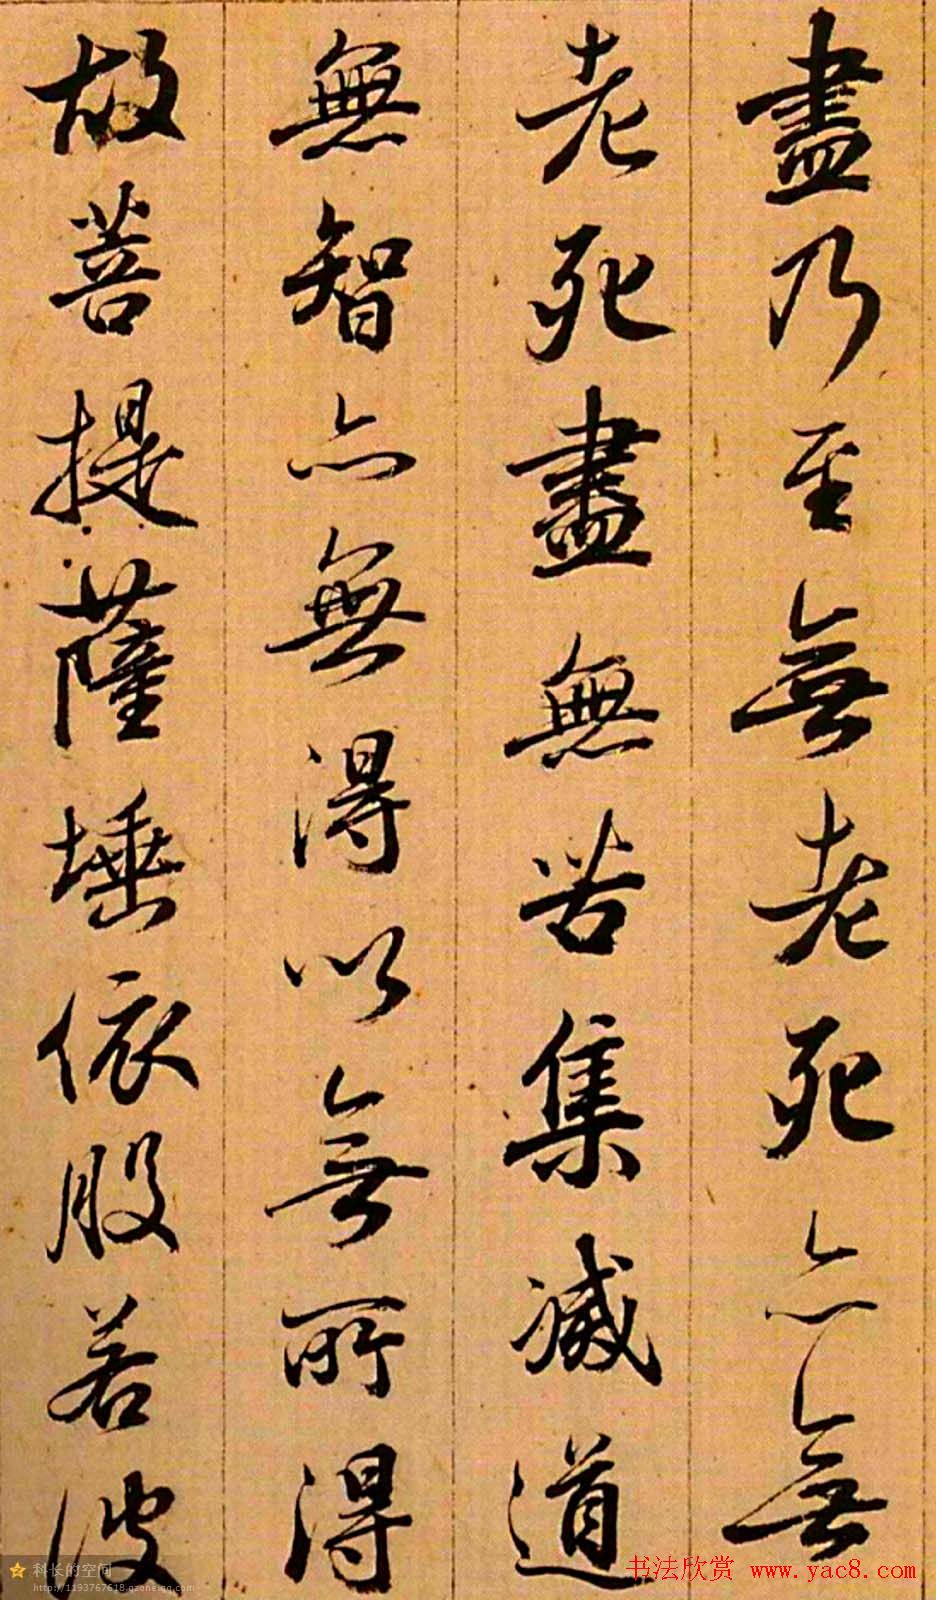 盡乃至無老死亦無
老死盡無苦集滅道
無智亦無得以無所得
故菩提薩埵依般若波
科长的空间
http://1193767618.qzone.qq.com
书法欣赏 www.yac8.com